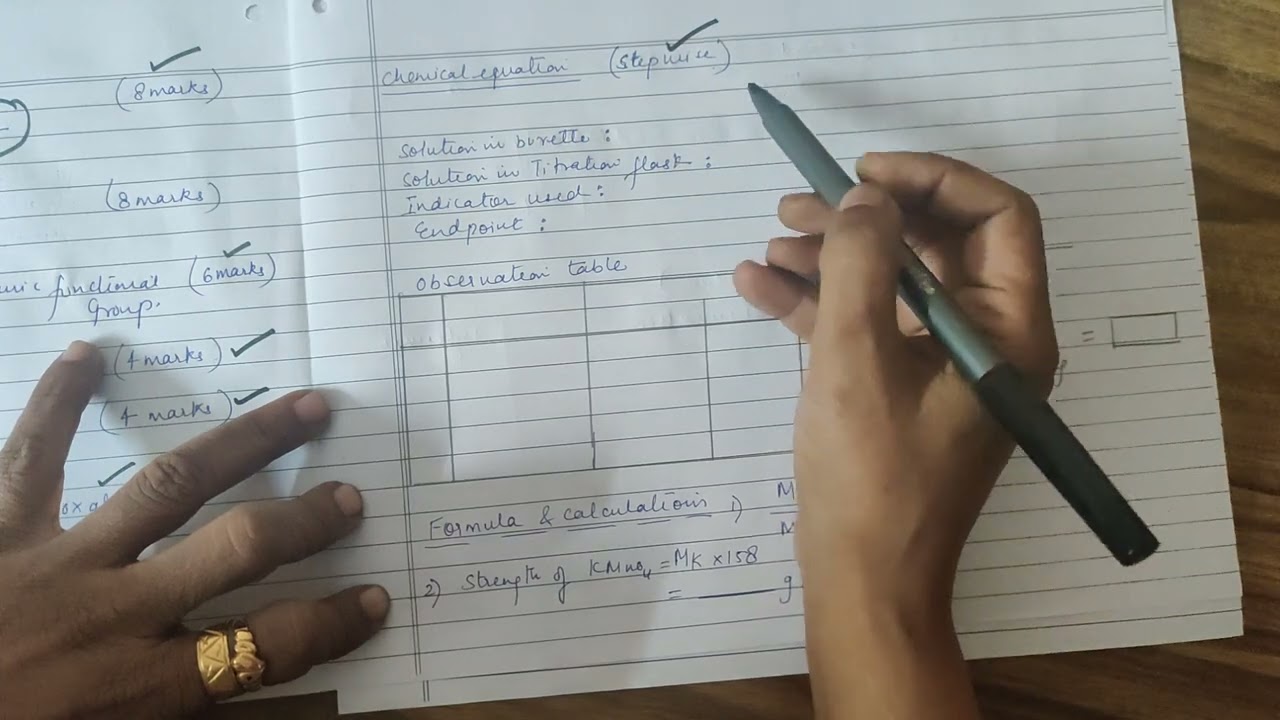 (8 marks)
(8 marks)
functional (6 marks)
Group.
(4 marks)
(4 marks)
chemical equation (stepwise)
Solution in burette :
Solution in Titration flask :
Indicator used :
Endpoint :
Observation table
=
Formula & calculations 1) M
M
2) Strength of KMnO4 = MK × 158
= ______ g